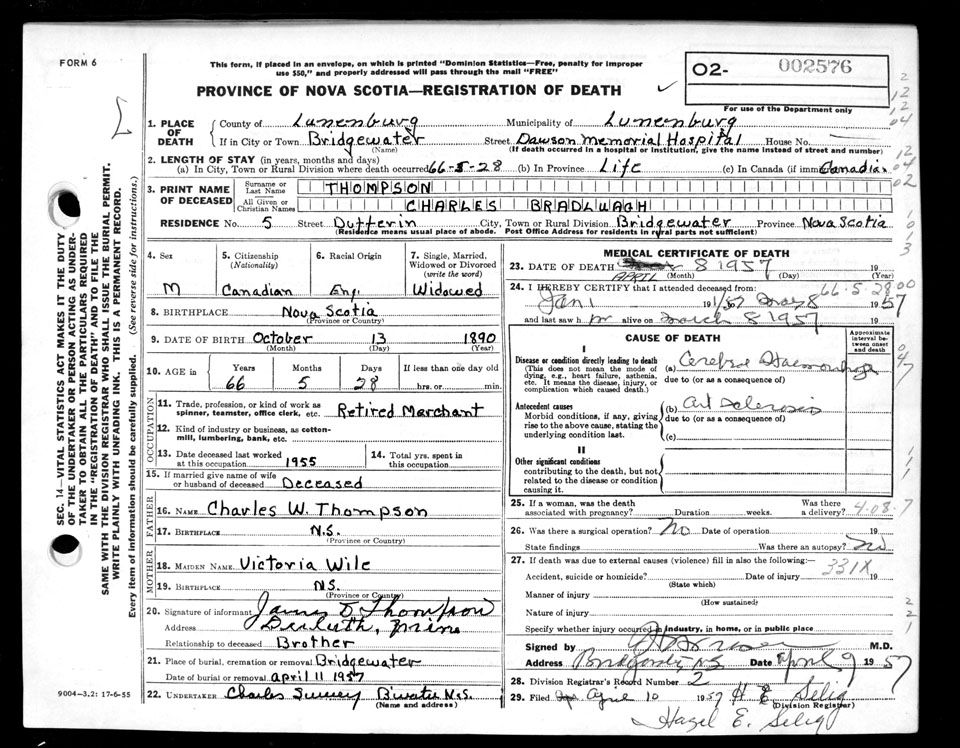 FORM 6
This form, if placed in an envelope, on which is printed "Dominion Statistics—Free, penalty for improper
use $50," and properly addressed will pass through the mail "FREE"
PROVINCE OF NOVA SCOTIA—REGISTRATION OF DEATH
02- 002576
For use of the Department only
1. PLACE OF DEATH
County of Lunenburg Municipality of Lunenburg
If in City or Town Bridgewater Street Dawson Memorial Hospital House No.
(Name) (If death occurred in a hospital or institution, give the name instead of street and number)
2. LENGTH OF STAY (in years, months and days)
(a) In City, Town or Rural Division where death occurred 66-5-28 (b) In Province Life (c) In Canada (if imm Canadian
3. PRINT NAME OF DECEASED
Surname or Last Name THOMPSON
All Given or Christian Names CHARLES BRADLUAGH
RESIDENCE No. 5 Street Dufferin City, Town or Rural Division Bridgewater Province Nova Scotia
(Residence means usual place of abode. Post Office Address for residents in rural parts not sufficient)
4. Sex
M
5. Citizenship
(Nationality)
Canadian
6. Racial Origin
Eng.
7. Single, Married,
Widowed or Divorced
(write the word)
Widowed
8. BIRTHPLACE Nova Scotia
(Province or Country)
9. DATE OF BIRTH October 13 1890
(Month) (Day) (Year)
10. AGE in Years Months Days If less than one day old
66 5 28 hrs. or min.
OCCUPATION
11. Trade, profession, or kind of work as
spinner, teamster, office clerk, etc. Retired Merchant
12. Kind of industry or business, as cotton-
mill, lumbering, bank, etc.
13. Date deceased last worked
at this occupation 1955
14. Total yrs. spent in
this occupation
15. If married give name of wife
or husband of deceased Deceased
FATHER
16. NAME Charles W. Thompson
17. BIRTHPLACE N.S.
(Province or Country)
MOTHER
18. MAIDEN NAME Victoria Wile
19. BIRTHPLACE N.S.
(Province or Country)
20. Signature of informant James D Thompson
Address Duluth, Minn
Relationship to deceased Brother
21. Place of burial, cremation or removal Bridgewater
Date of burial or removal April 11 1957
22. UNDERTAKER Charles Bwater N.S.
(Name and address)
MEDICAL CERTIFICATE OF DEATH
23. DATE OF DEATH APRIL 8 1957 19
(Month) (Day) (Year)
24. I HEREBY CERTIFY that I attended deceased from: 66-5-28 00
Jan 1 1957 8 1957
and last saw h m alive on March 8 1957 19
CAUSE OF DEATH
Approximate interval between onset and death
I
Disease or condition directly leading to death
(This does not mean the mode of
dying, e.g., heart failure, asthenia,
etc. It means the disease, injury, or
complication which caused death.)
(a) Cerebral Haemorrhage
due to (or as a consequence of)
Antecedent causes
Morbid conditions, if any, giving
rise to the above cause, stating the
underlying condition last.
(b) Art sclerosis
due to (or as a consequence of)
(c)
II
Other significant conditions
contributing to the death, but not
related to the disease or condition
causing it.
25. If a woman, was the death
associated with pregnancy? Duration weeks. Was there
a delivery? 4-08-7
26. Was there a surgical operation? No Date of operation 19
State findings Was there an autopsy? No
27. If death was due to external causes (violence) fill in also the following:—
331X
Accident, suicide or homicide? Date of injury 19
(State which)
Manner of injury
(How sustained)
Nature of injury
Specify whether injury occurred in industry, in home, or in public place
Signed by M.D.
Address Bridgewater N.S. Date April 9 1957
28. Division Registrar's Record Number 2
29. Filed April 10 1957 H E Selig
(Division Registrar)
Hazel E. Selig
SEC. 14—VITAL STATISTICS ACT MAKES IT THE DUTY
OF THE UNDERTAKER OR PERSON ACTING AS UNDER-
TAKER TO OBTAIN ALL THE PARTICULARS REQUIRED
IN THE "REGISTRATION OF DEATH" AND TO FILE THE
SAME WITH THE DIVISION REGISTRAR WHO SHALL ISSUE THE BURIAL PERMIT.
WRITE PLAINLY WITH UNFADING INK. THIS IS A PERMANENT RECORD.
Every item of information should be carefully supplied. (See reverse side for instructions.)
9004-3,2: 17-6-55